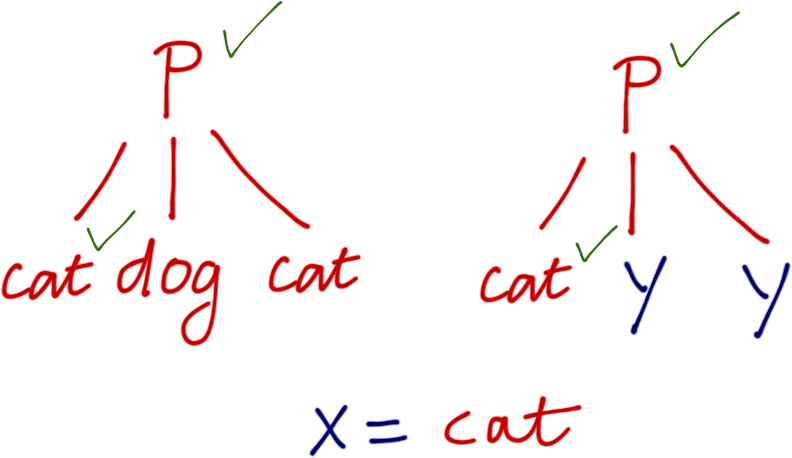 P P
cat dog cat cat y y
x = cat